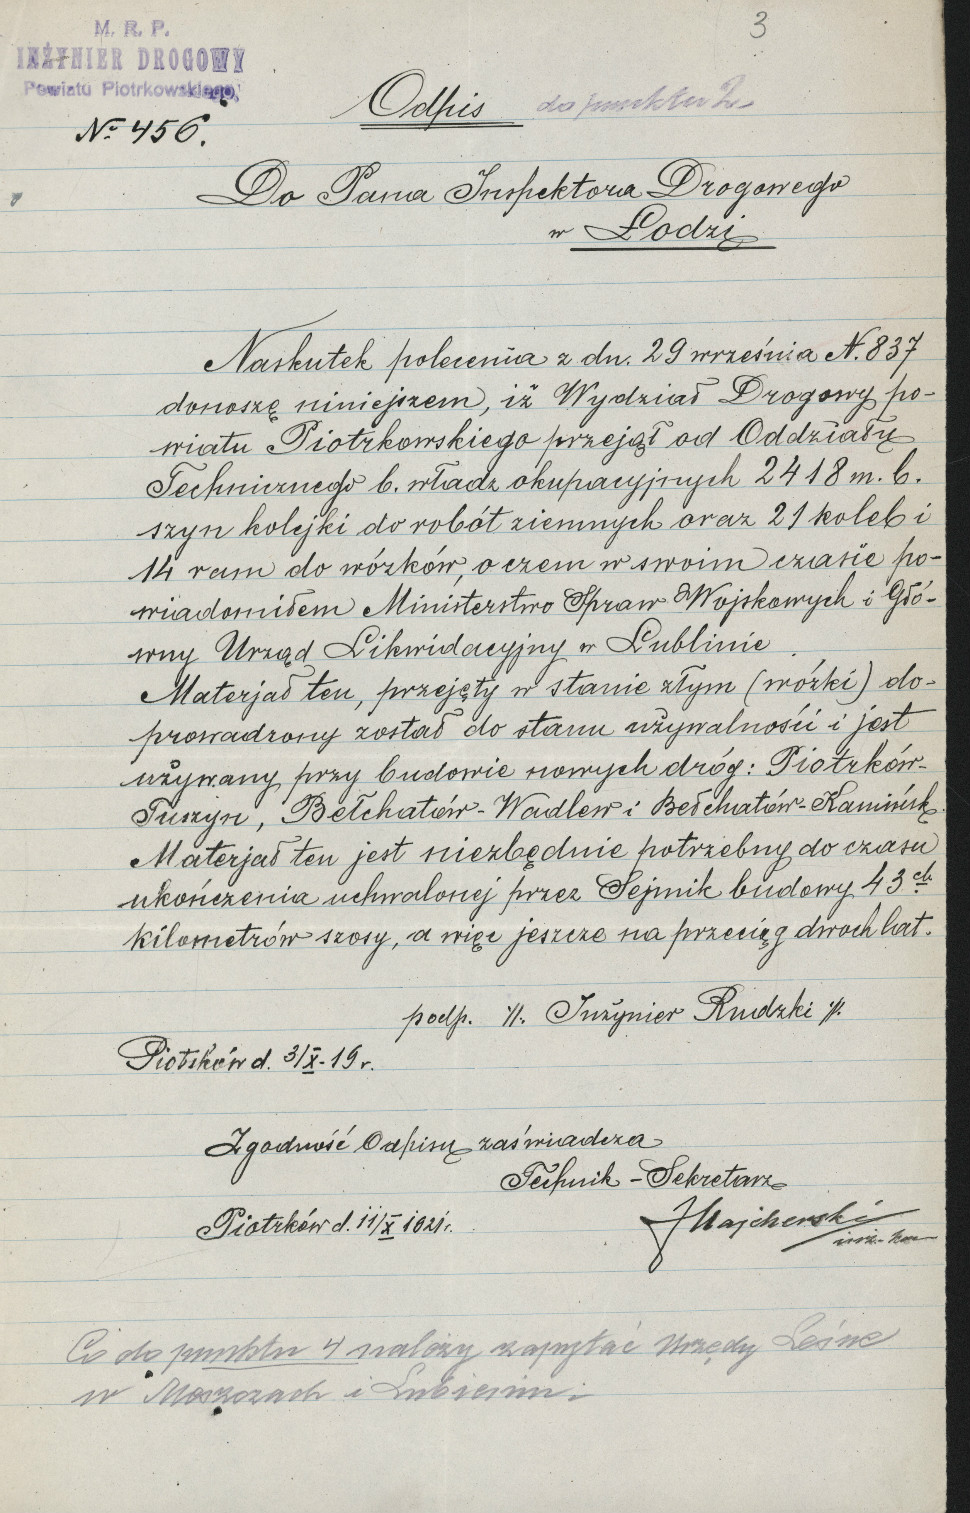 3
M. R. P.
INŻYNIER DROGOWY
Powiatu Piotrkowskiego
№ 456.
Odpis do punktu 2
Do Pana Inspektora Drogowego
w Łodzi
Naskutek polecenia z dn. 29 września N. 837
donoszę niniejszem, iż Wydział Drogowy po-
wiatu Piotrkowskiego przejął od Oddziału
Technicznego b. władz okupacyjnych 2418 m. b.
szyn kolejki do robót ziemnych oraz 21 koleb i
14 ram do wózków, o czem w swoim czasie po-
wiadomiłem Ministerstwo Spraw Wojskowych i Głó-
wny Urząd Likwidacyjny w Lublinie.
Materjał ten, przejęty w stanie złym (wózki) do-
prowadzony został do stanu używalności i jest
używany przy budowie nowych dróg: Piotrków-
Tuszyn, Bełchatów-Wadlew i Bełchatów-Kamińsk.
Materjał ten jest niezbędnie potrzebny do czasu
ukończenia uchwalonej przez Sejmik budowy 43 ch
kilometrów szosy, a więc jeszcze na przeciąg dwoch lat.
podp. //. Inżynier Rudzki //.
Piotrków d. 3/X-19 r.
Zgodność Odpisu zaświadcza
Technik-Sekretarz
Piotrków d. 11/X 1921 r. Majcherski
Co do punktu 4 należy zapytać Urzędy Leśne
w Meszczach i Lubieniu.